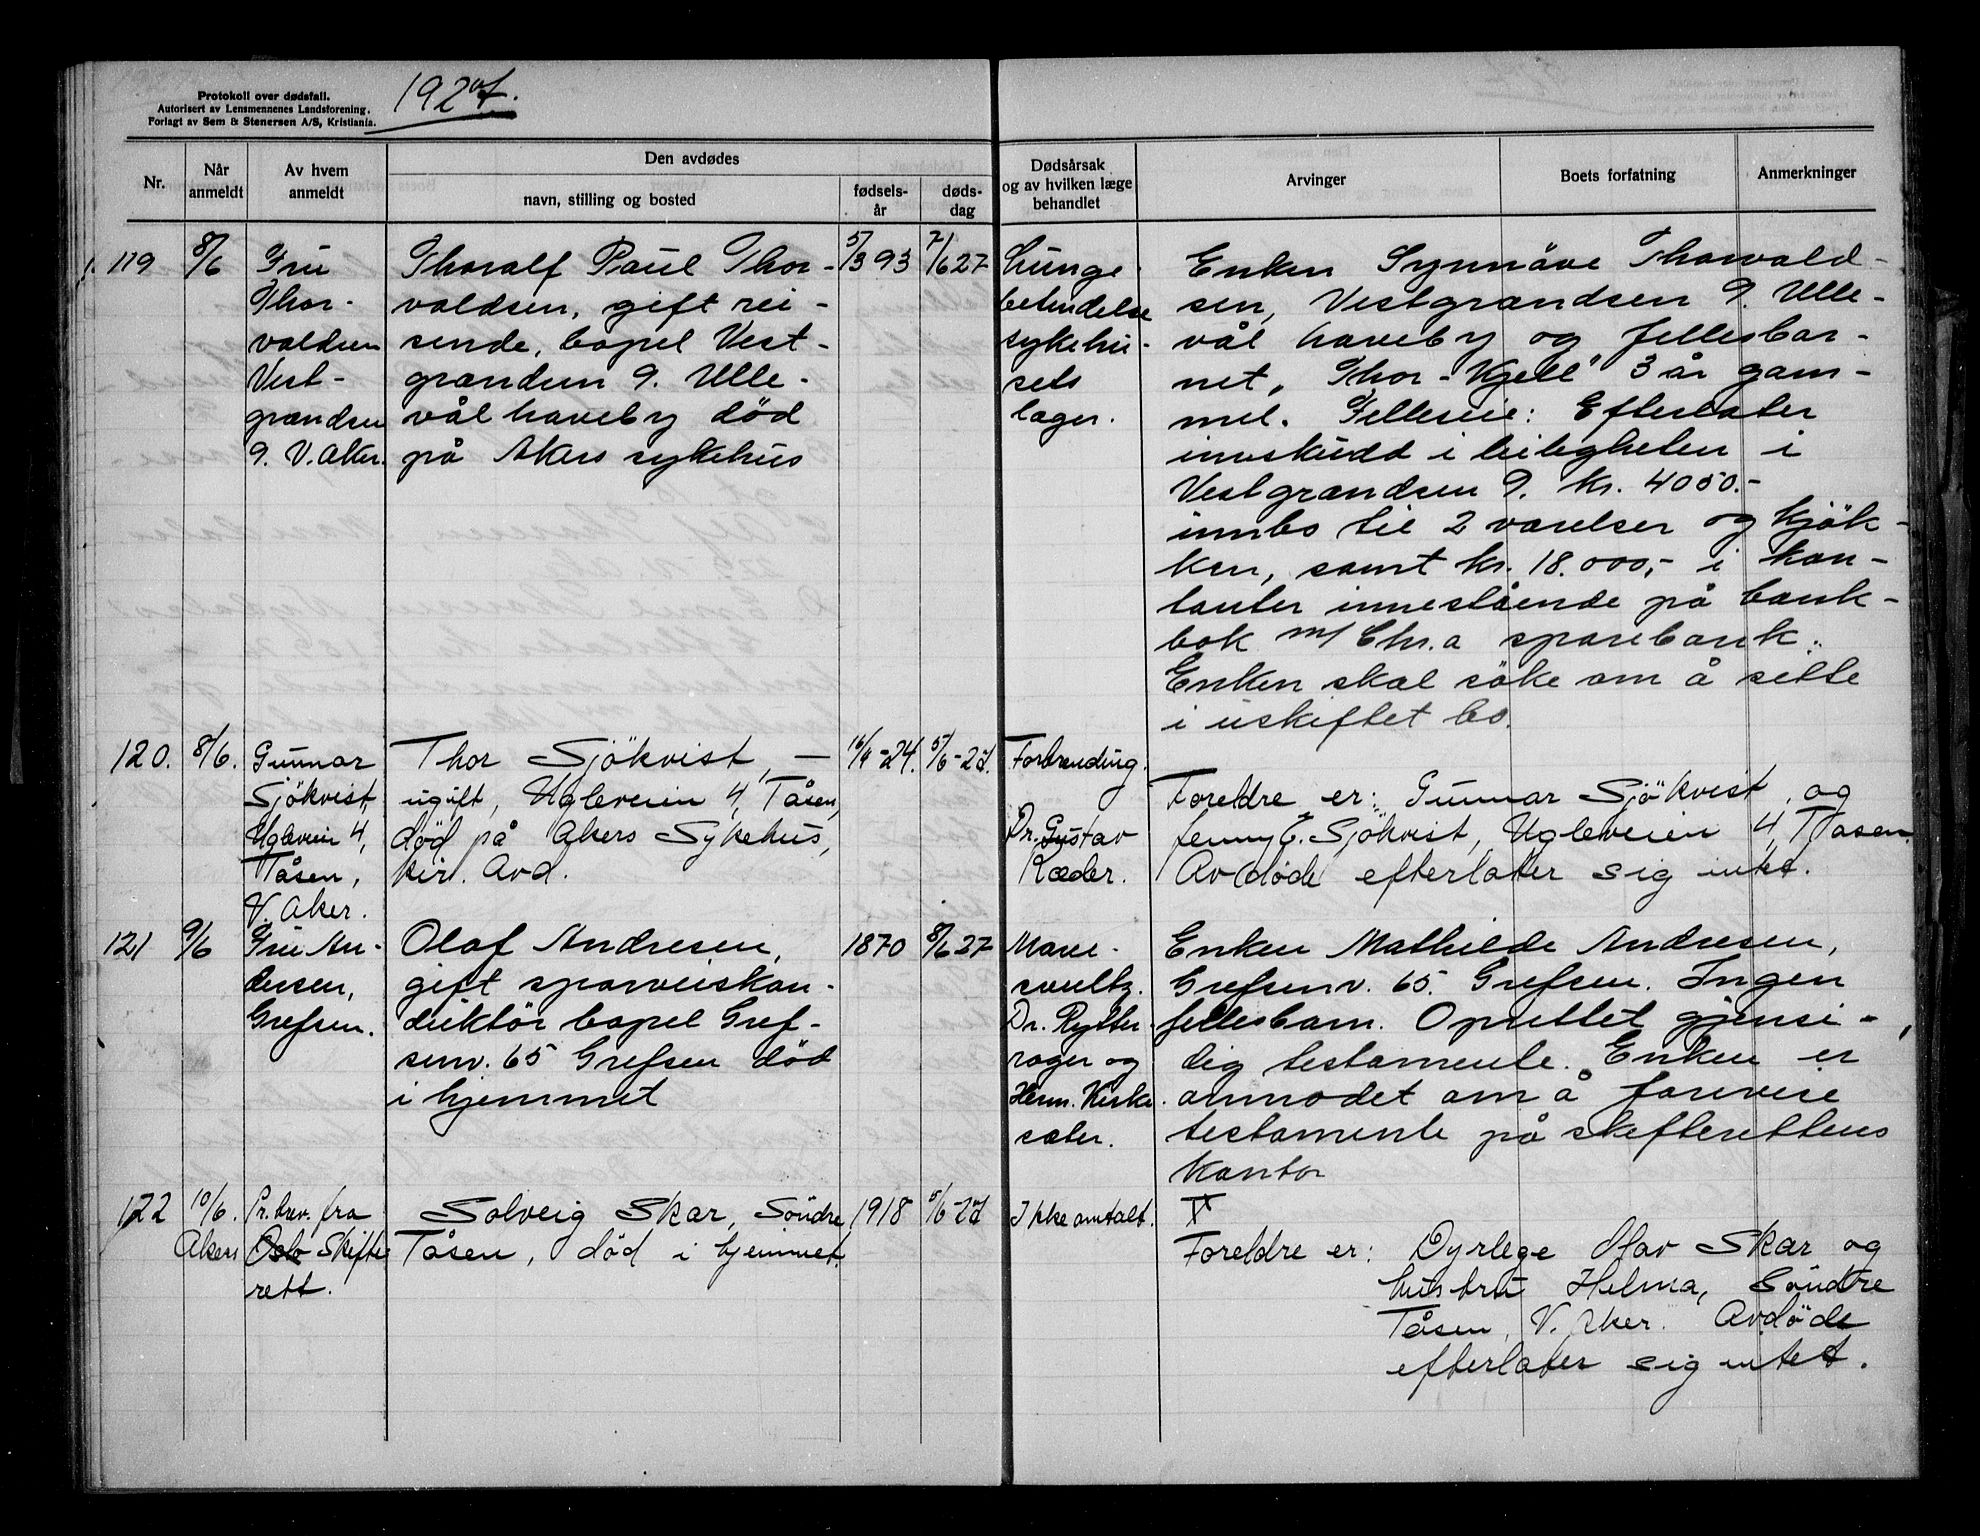 Protokoll over dødsfall.
Autorisert av Lensmennenes Landsforening.
Forlagt av Sem & Stenersen A/S, Kristiania.
1927.
Nr.
Når anmeldt
Av hvem anmeldt
Den avdødes
navn, stilling og bosted
fødsels-år
døds-dag
Dødsårsak og av hvilken læge behandlet
Arvinger
Boets forfatning
Anmerkninger
119
8/6
Fru
Thor-
valdsen
Vest-
grændsen
9. V. Aker.
Thoralf Paul Thor-
valdsen, gift rei-
sende, bopel Vest-
grændsen 9. Ulle-
vål haveby død
på Akers sykehus
5/3 93
7/6 27
Lunge
betendelse
sykehu-
sets
læger.
Enken Synnåve Thorvald-
sen, Vestgrændsen 9. Ulle-
vål haveby og fellesbar-
net, Thor-Kjell 3 år gam-
mel. Felleseie: Efterlater
innskudd i leiligheten i
Vestgrændsen 9. kr. 4050.-
innbo til 2 værelser og kjøk-
ken, samt kr. 18.000,- i kon-
tanter innestående på bank-
bok m/ Chr.a sparebank.
Enken skal søke om å sitte
i uskiftet bo.
120.
8/6.
Gunnar
Sjökvist,
Ugleveien 4,
Tåsen,
V. Aker.
Thor Sjökvist, —
ugift, Ugleveien 4, Tåsen,
död på Akers Sykehus,
kir. Avd.
5/6-27.
Forbrending.
Dr. Gustav
Ræder.
Foreldre er: Gunnar Sjökvist, og
Jenny E. Sjökvist, Ugleveien 4, Tåsen.
Avdöde efterlater sig intet.
121
9/6
Fru An-
dresen,
Grefsen.
Olaf Andresen,
gift sporveiskon-
duktör bopel Gref-
senv. 65 Grefsen död
i hjemmet
1870
8/6 27
Mave-
svulst.
Dr. Rytter-
rager og
Herm. Kirke-
sæter.
Enken Mathilde Andresen,
Grefsenv. 65. Grefsen. Ingen
fellesbarn. Oprettet gjensi-
dig testamente. Enken er
anmodet om å forevise
testamente på skifterettens
kontor
122
10/6.
Pr. brev. fra
Akers Oslo Skifte
rett.
Solveig Skar, Söndre
Tåsen, död i hjemmet.
1918
5/6-27
Ikke omtalt.
Foreldre er: Dyrlege Olav Skar og
hustru Helma, Söndre
Tåsen, V. Aker. Avdöde
efterlater sig intet.